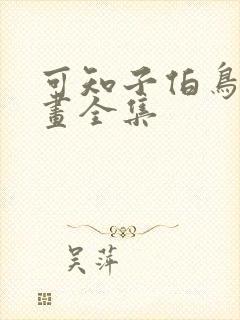 可知子伯鳥
畫全集
吳萍